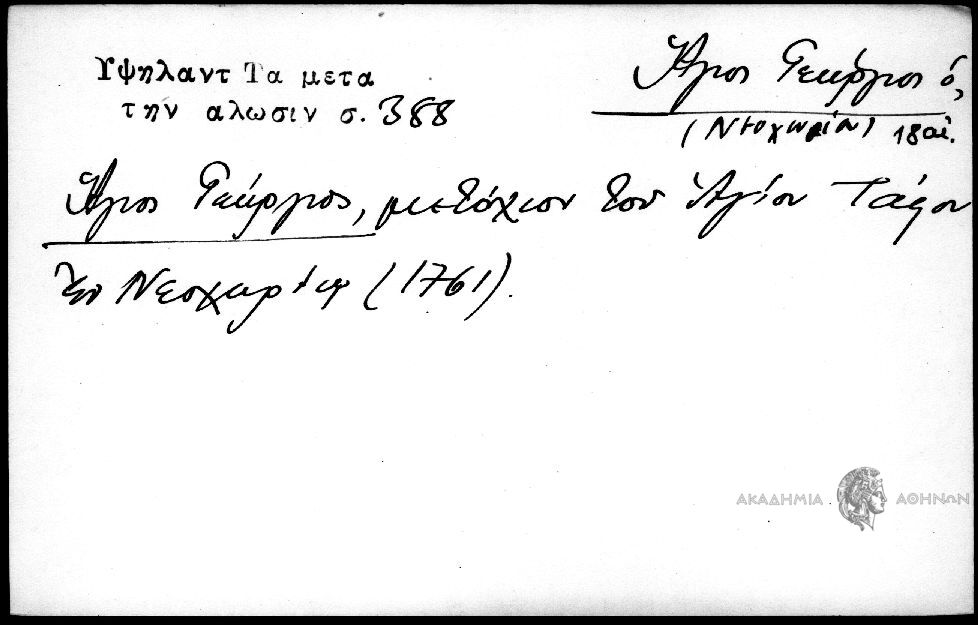 Υψηλαντ Τα μετα
την αλωσιν σ. 388
Ἅγιος Γεώργιος ὁ,
(Νεοχωρίου) 18 αἰ.
Ἅγιος Γεώργιος, μετόχιον τοῦ Ἁγίου Τάφου
ἐν Νεοχωρίῳ (1761).
ΑΚΑΔΗΜΙΑ ΑΘΗΝΩΝ